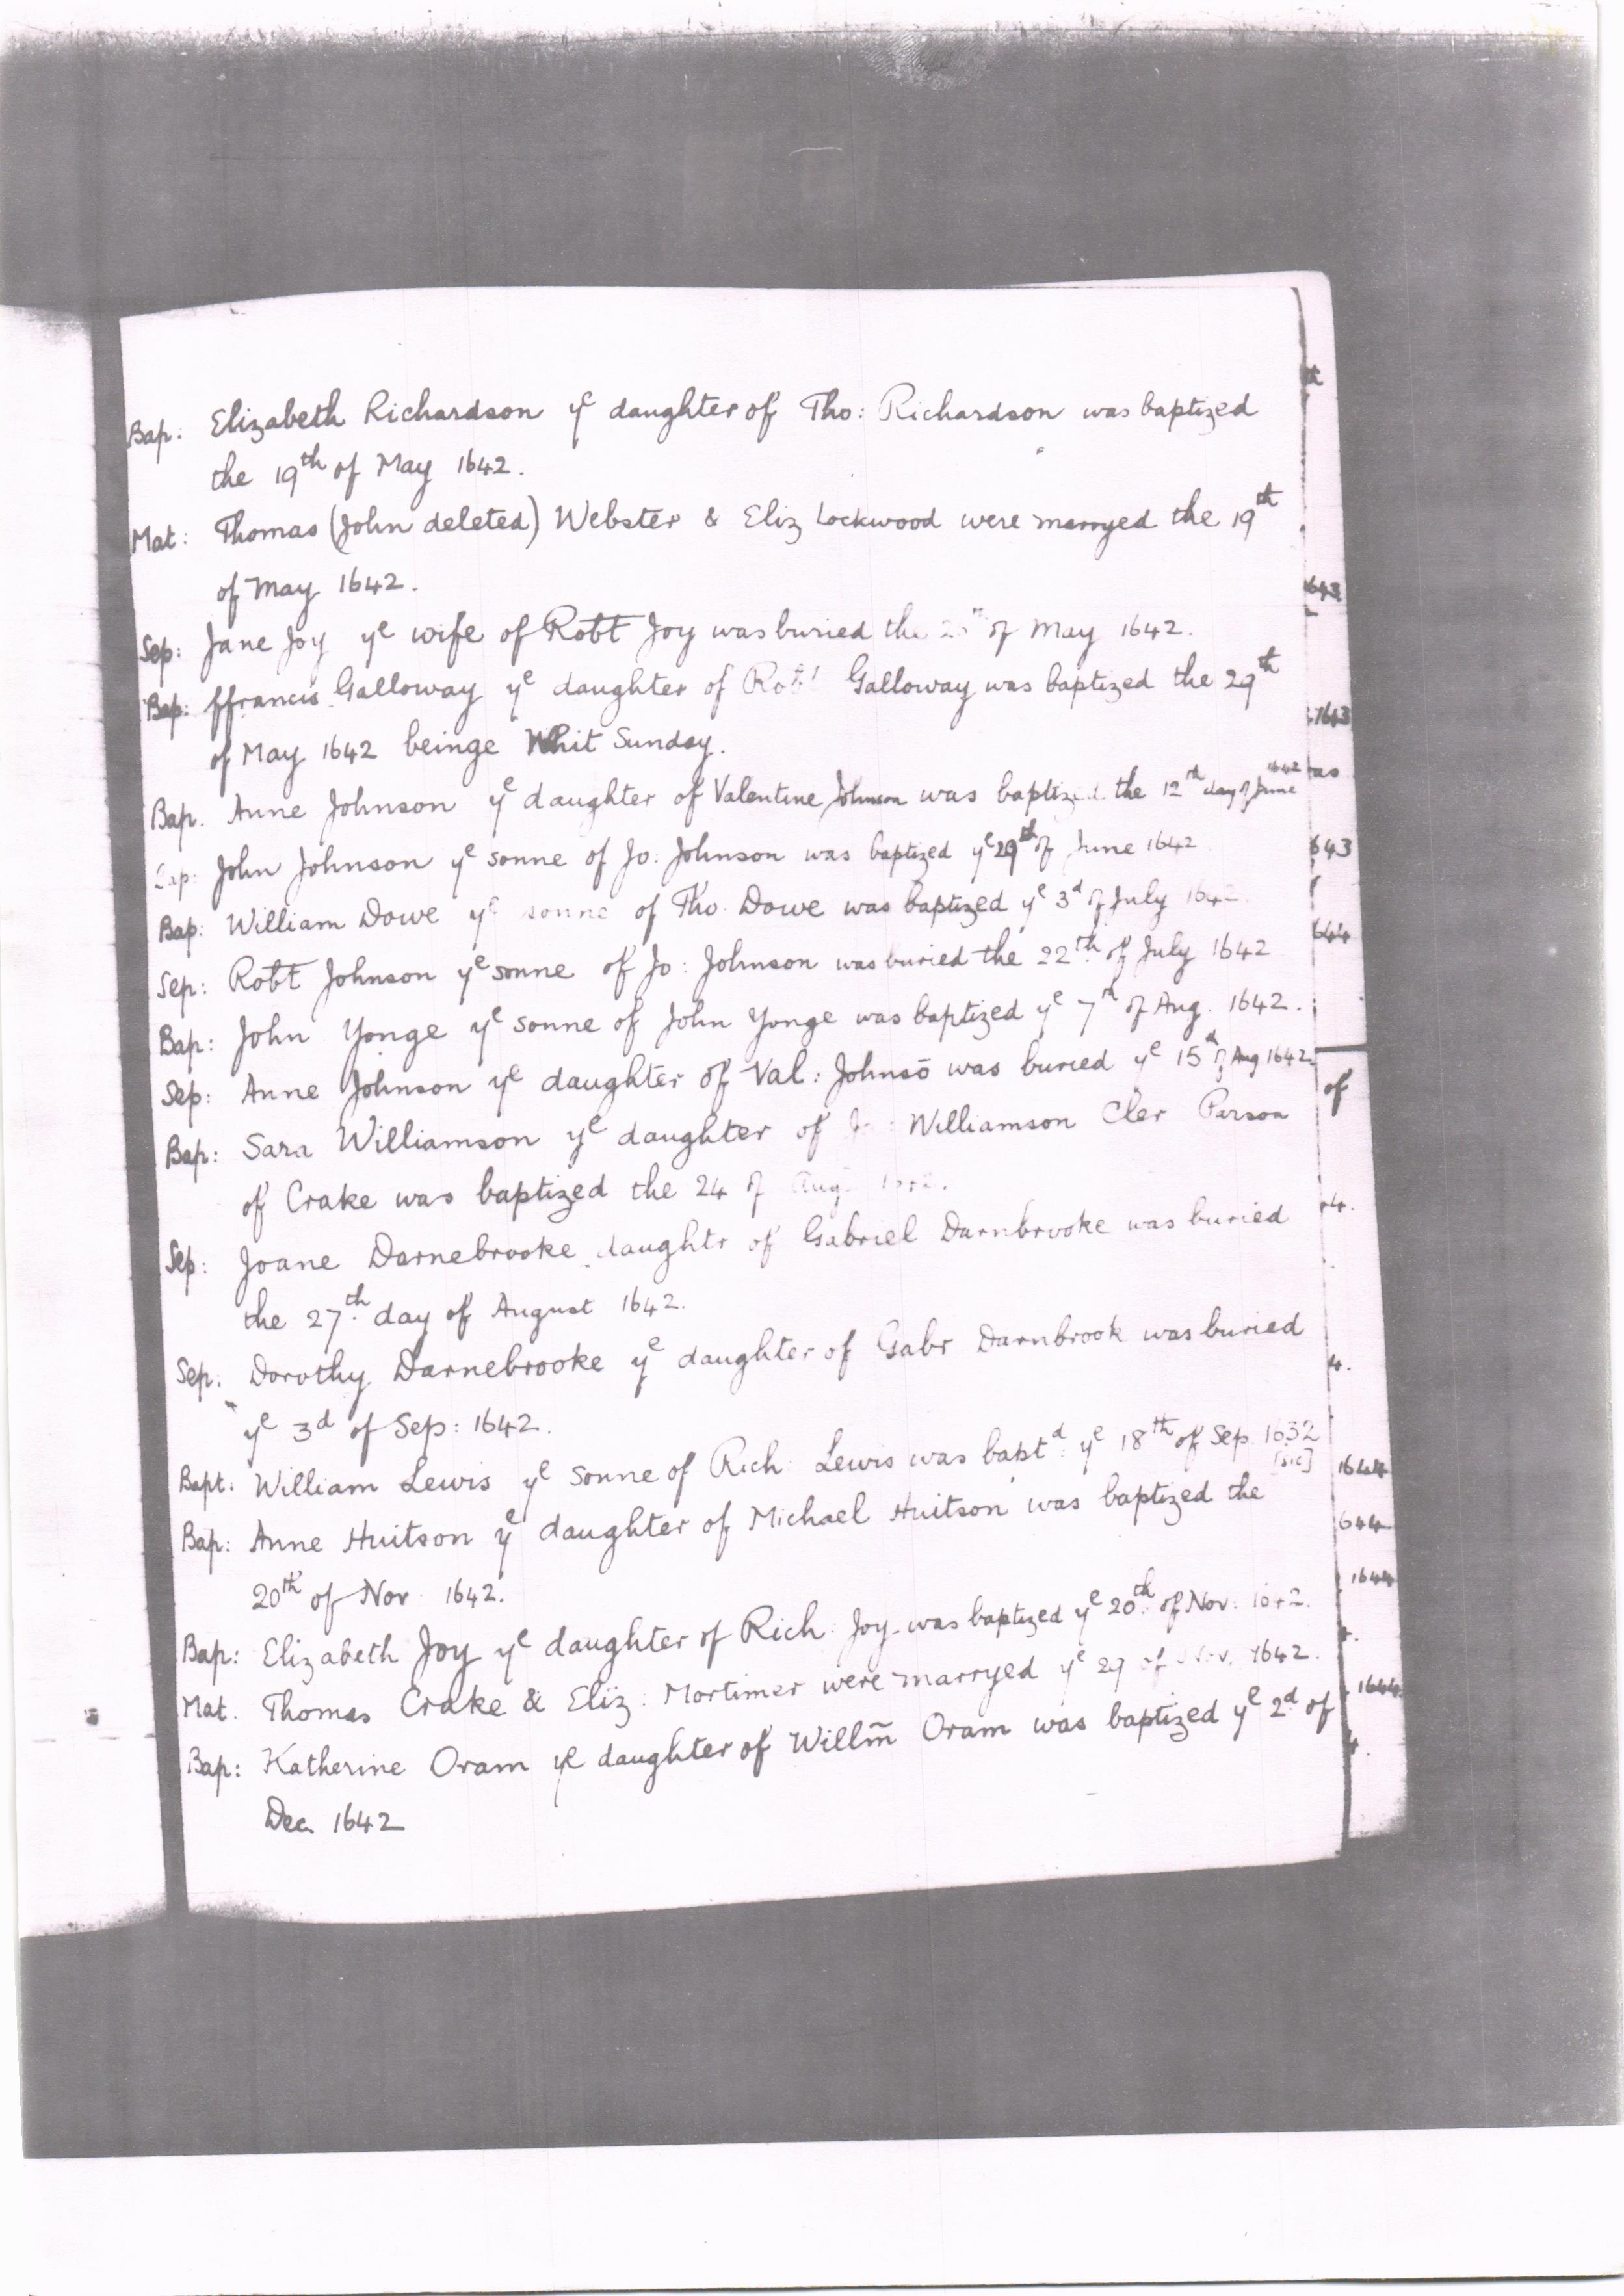 Bap: Elizabeth Richardson yᵉ daughter of Tho: Richardson was baptized
the 19ᵗʰ of May 1642.
Mat: Thomas (John deleted) Webster & Eliz Lockwood were marryed the 19ᵗʰ
of May 1642.
Sep: Jane Joy yᵉ wife of Robt Joy was buried the of May 1642.
Bap: ffrancis Galloway yᵉ daughter of Robt Galloway was baptized the 29ᵗʰ
of May 1642 beinge Whit Sunday.
Bap. Anne Johnson yᵉ daughter of Valentine Johnson was baptized the 12ᵗʰ day of June 1642
Bap: John Johnson yᵉ sonne of Jo: Johnson was baptized yᵉ 29ᵗʰ of June 1642
Bap: William Dowe yᵉ sonne of Tho. Dowe was baptized yᵉ 3ᵈ of July 1642
Sep: Robt Johnson yᵉ sonne of Jo: Johnson was buried the 22ᵗʰ of July 1642
Bap: John Yonge yᵉ sonne of John Yonge was baptized yᵉ 7ᵗʰ of Aug. 1642.
Sep: Anne Johnson yᵉ daughter of Val: Johnsō was buried yᵉ 15ᵗʰ of Aug 1642
Bap: Sara Williamson yᵉ daughter of Jo: Williamson Cler Parson
of Crake was baptized the 24 of Aug: 1642.
Sep: Joane Darnebrooke daughtr of Gabriel Darnbrooke was buried
the 27ᵗʰ. day of August 1642.
Sep: Dorothy Darnebrooke yᵉ daughter of Gabr Darnbrook was buried
yᵉ 3ᵈ of Sep: 1642.
Bapt: William Lewis yᵉ sonne of Rich: Lewis was baptᵈ: yᵉ 18ᵗʰ of Sep 1632
[sic]
Bap: Anne Huitson yᵉ daughter of Michael Huitson was baptized the
20ᵗʰ of Nov 1642.
Bap: Elizabeth Joy yᵉ daughter of Rich: Joy was baptized yᵉ 20ᵗʰ. of Nov: 1642.
Mat. Thomas Crake & Eliz: Mortimer were marryed yᵉ 29 of Nov. 1642.
Bap: Katherine Oram yᵉ daughter of Willm̃ Oram was baptized yᵉ 2ᵈ of
Dec. 1642